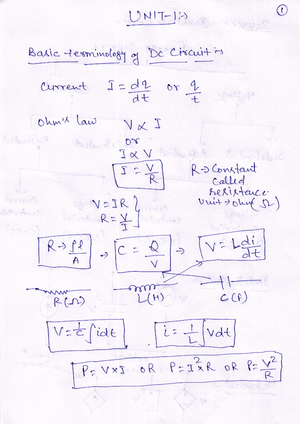 ①
UNIT-1:-
Basic terminology of Dc Circuit:-
Current I = dq/dt or q/t
Ohm's law V ∝ I
or
I ∝ V
I = V/R
R → Constant
called
resistance
unit → ohm (Ω)
V = IR
R = V/I
R → ρl/A → C = Q/V → V = L di/dt
R(Ω) L(H) C(F)
V = 1/C ∫idt i = 1/L ∫Vdt
P = V×I OR P = I²×R OR P = V²/R